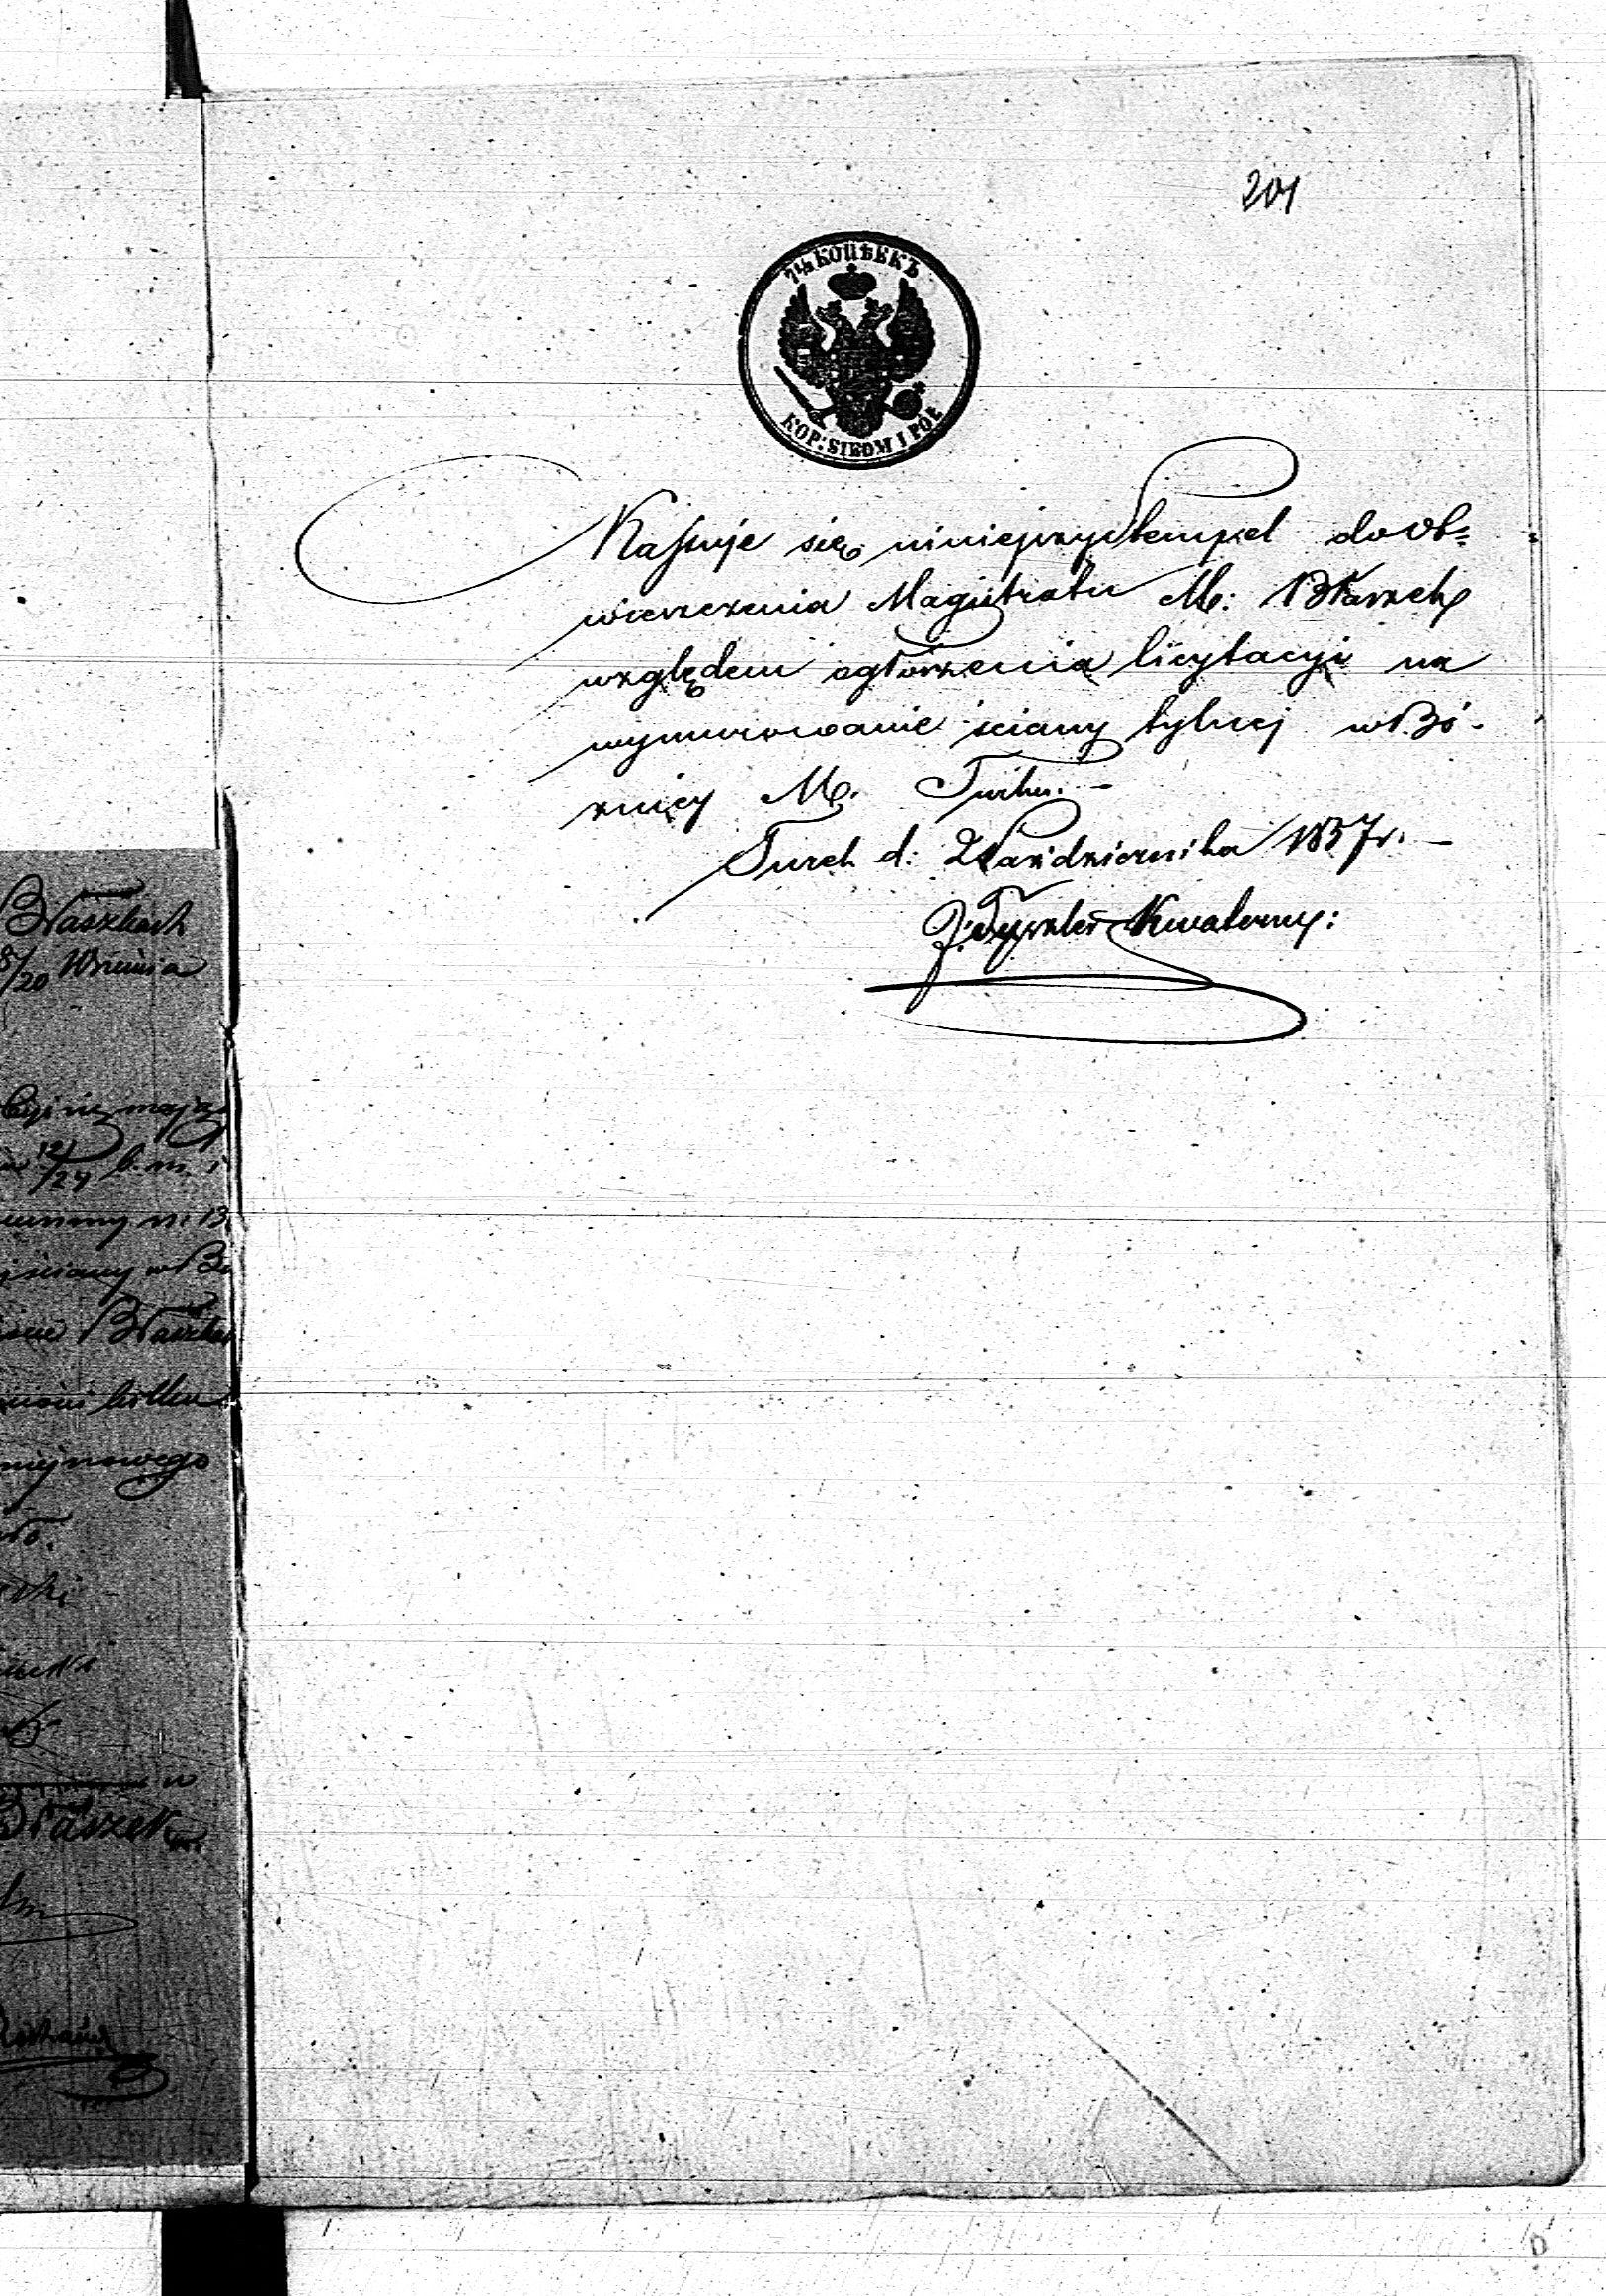 201
7½ КОПѢЕКЪ
KOP: SIEDM I PÓŁ
Kassuje się niniejszy stempel do Ob=
wieszczenia Magistratu M: Błaszek
względem ogłoszenia licytacyi na
wymurowanie ściany tylney w Bó-
żnicy M. Turku. –
Turek d: 2 Października 1837 r. –
Kwaterny:
Błaszkach
8/20 Września
cyi nę mają
12/24 b. m. i
ściany w Bó
Błaszka
niejszowego
Błaszek